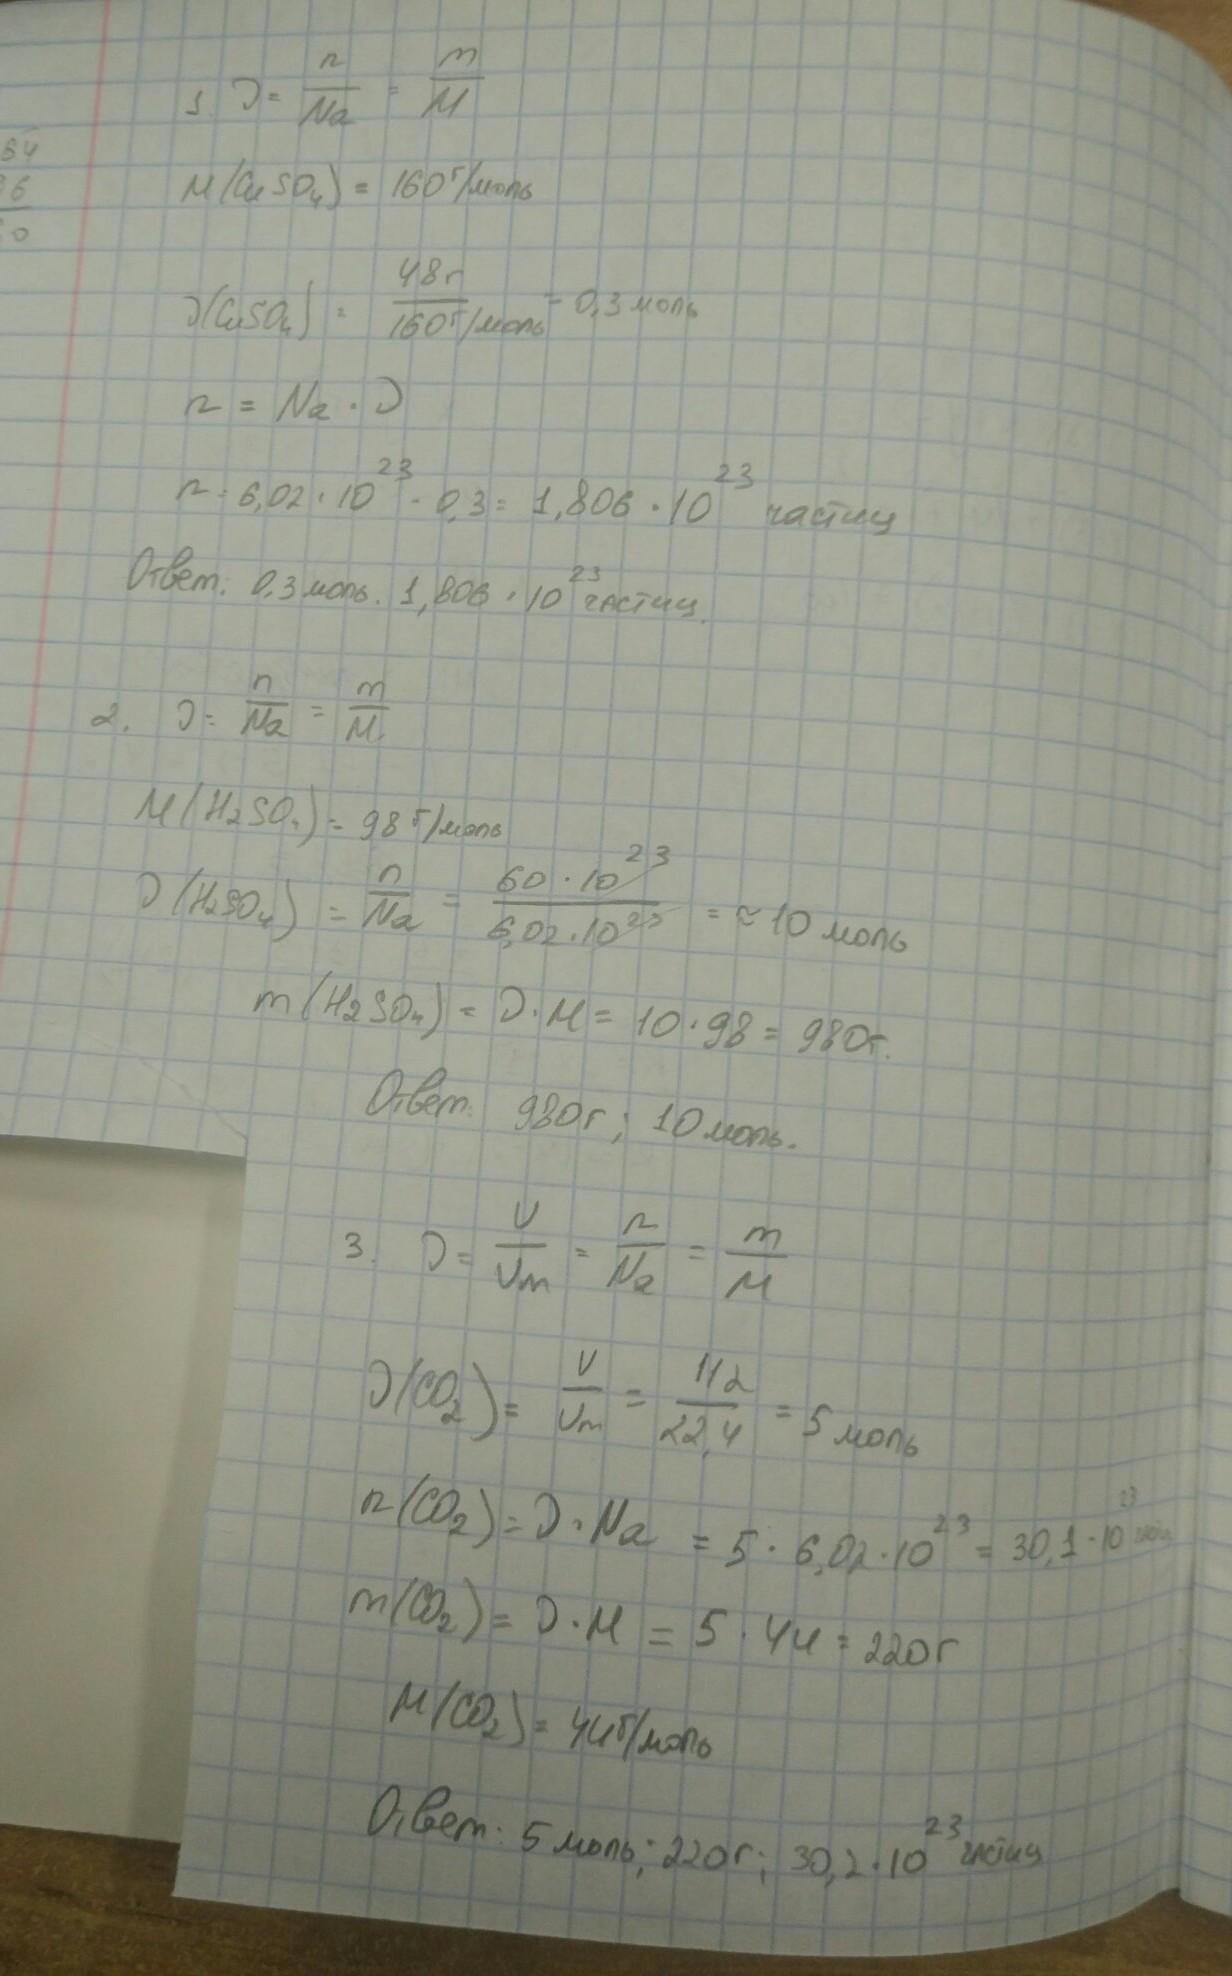 64
96
60
1. ν = n/Na = m/M
M(CuSO₄) = 160 г/моль
ν(CuSO₄) = 48г/160 г/моль = 0,3 моль
n = Na · ν
n = 6,02 · 10²³ · 0,3 = 1,806 · 10²³ частиц
Ответ: 0,3 моль. 1,806 · 10²³ частиц.
2. ν = n/Na = m/M
M(H₂SO₄) = 98 г/моль
ν(H₂SO₄) = n/Na = 60 · 10²³/6,02 · 10²³ = ≈ 10 моль
m(H₂SO₄) = ν · M = 10 · 98 = 980г.
Ответ: 980г; 10 моль.
3. ν = V/Vm = n/Na = m/M
ν(CO₂) = V/Vm = 112/22,4 = 5 моль
n(CO₂) = ν · Na = 5 · 6,02 · 10²³ = 30,1 · 10²³
m(CO₂) = ν · M = 5 · 44 = 220г
M(CO₂) = 44 г/моль
Ответ: 5 моль; 220г; 30,2 · 10²³ частиц